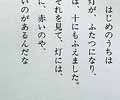 はじめのうちは
灯が、ふたつになり、
は、十にもふえました。
それを見て、灯には、
に、赤いのや、
いのがあるんだな